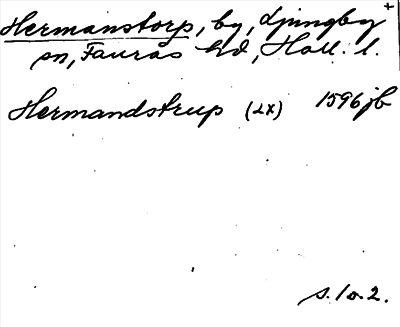 +
Hermanstorp, by, Ljungby
sn, Fauras hd, Hall. l.
Hermandstrup (2x) 1596 jb
s. 1 o. 2.